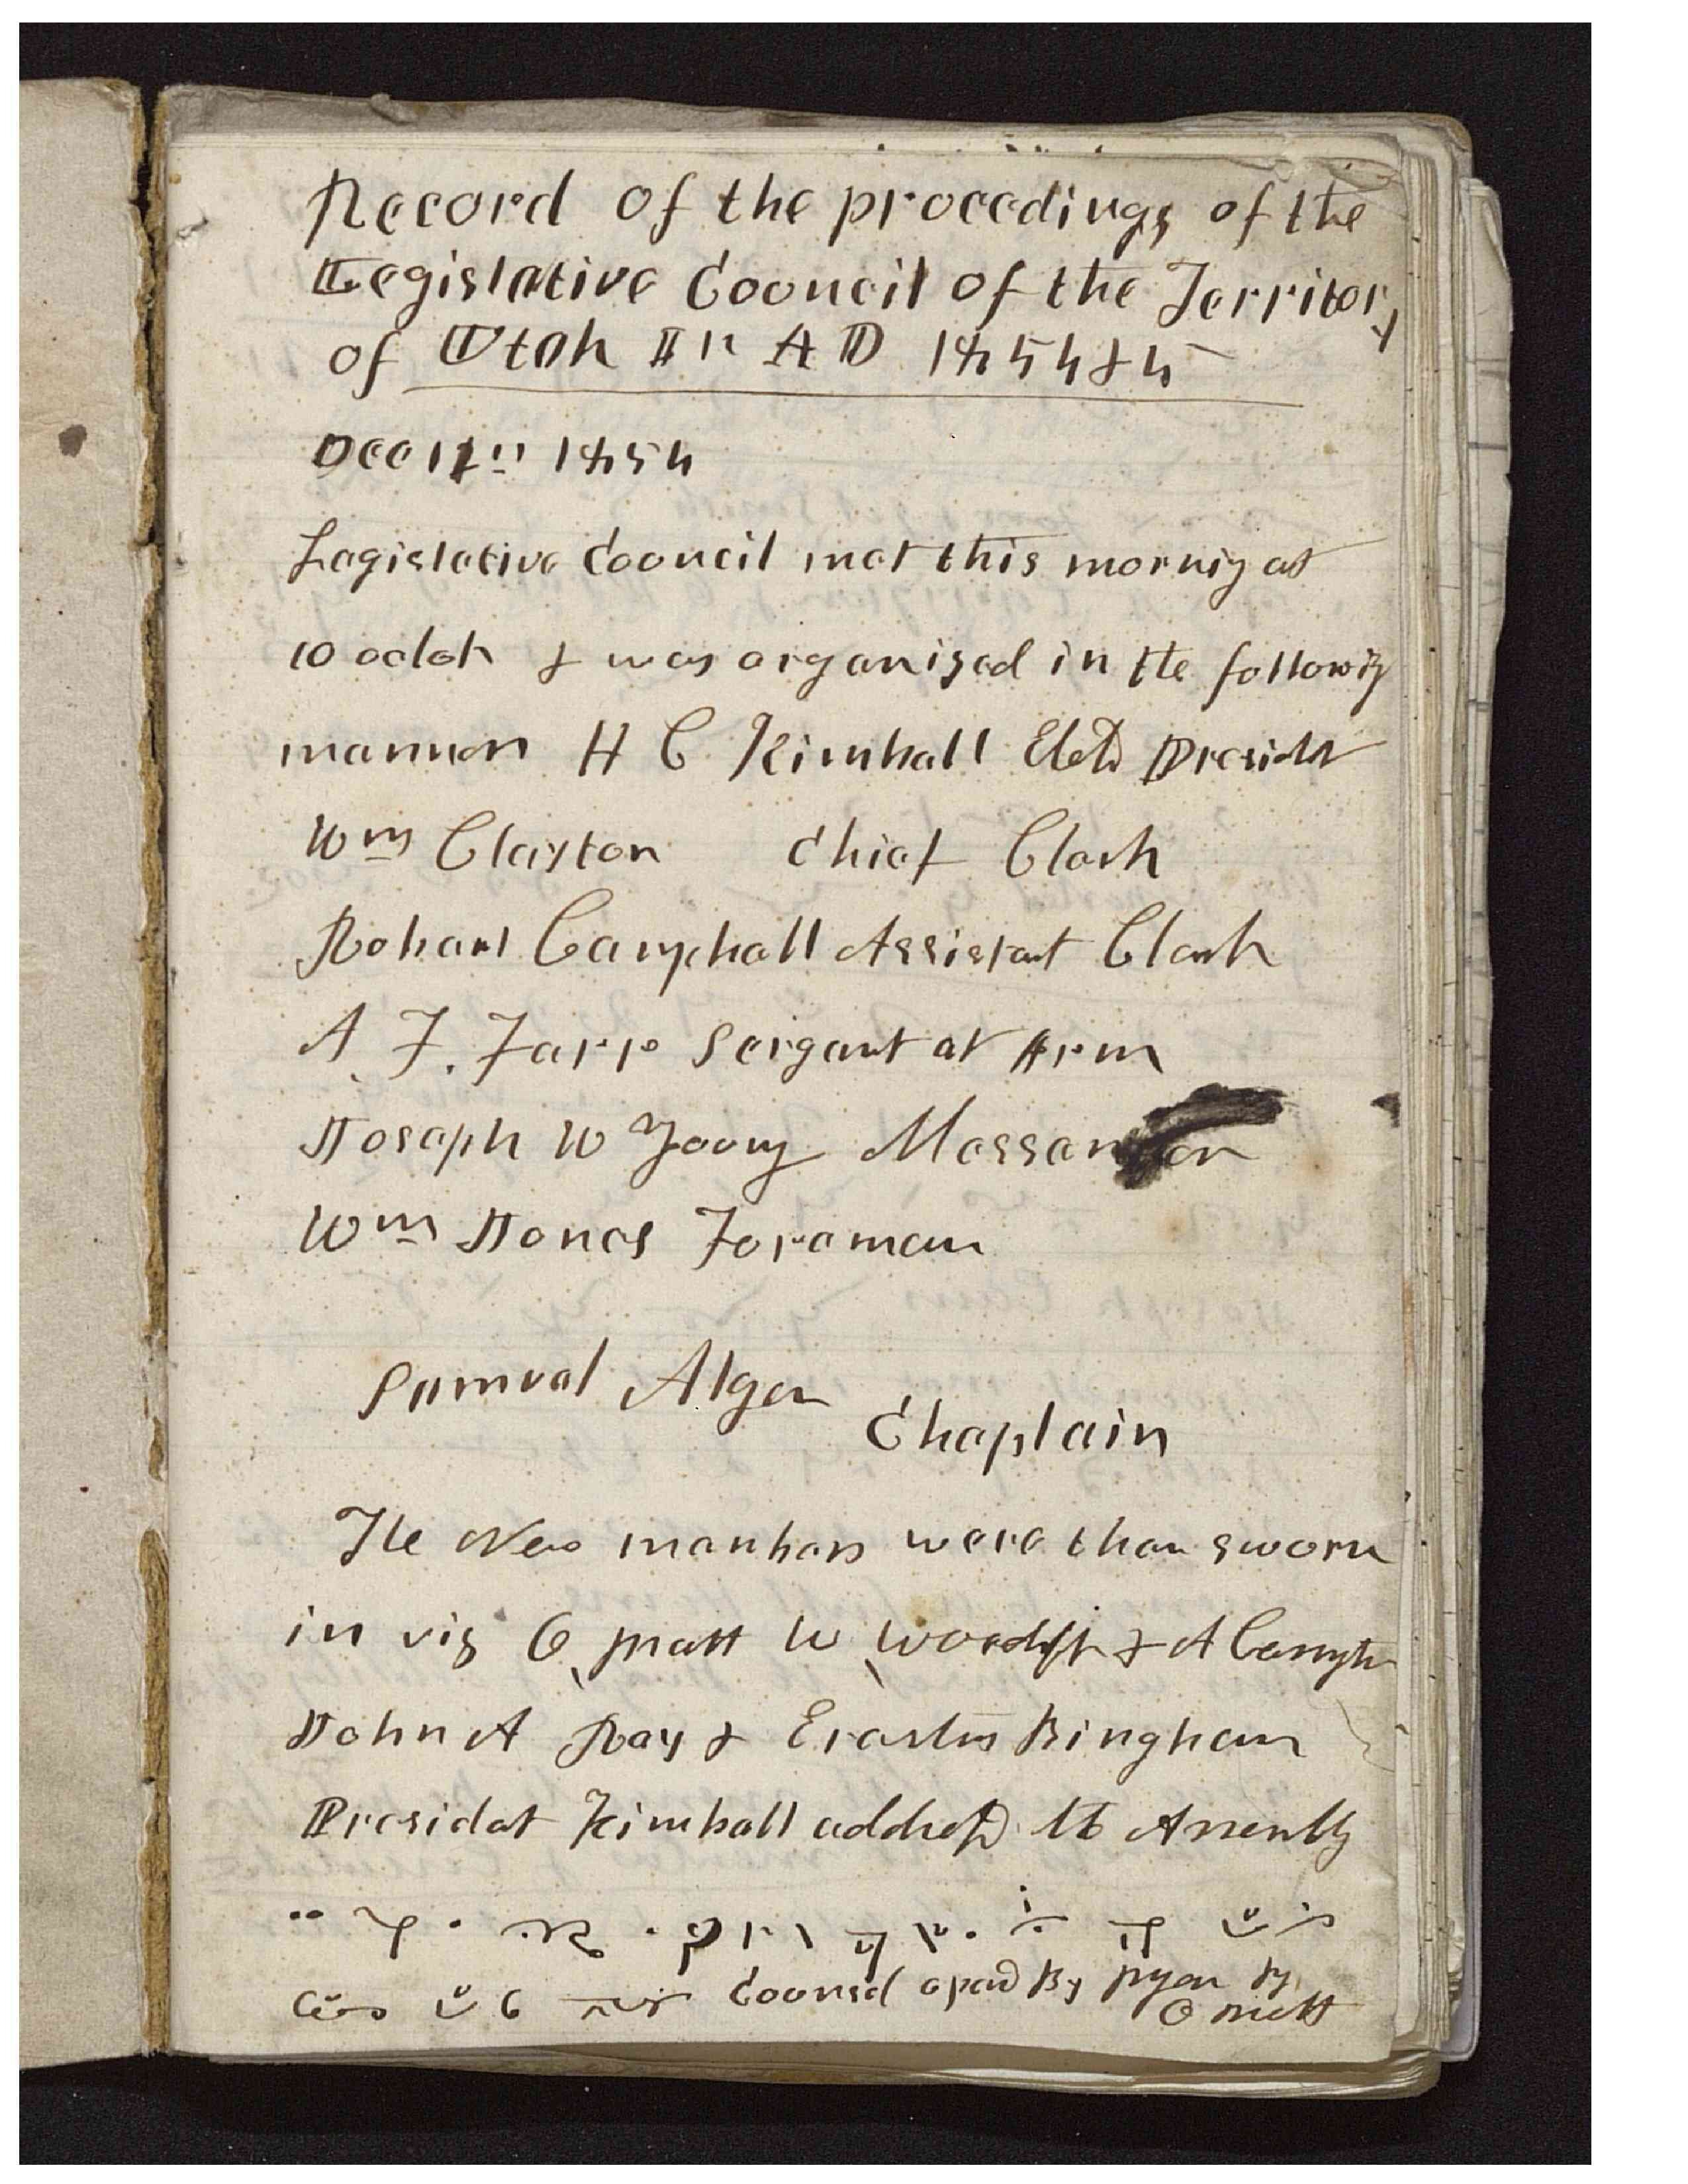 Record of the proceedings of the
Legislative Council of the Territory
of Utah In AD 1854 & 5
Dec 11th 1854
Legislative Council met this mornig at
10 oclok & was organized in the followig
manner H C Kimball Eletd Presidet
Wm Clayton Chief Clerk
Robert Campbell Assistant Clerk
A. F. Farr Sergant at Arm
Joseph W Young Messenger
Wm Jones Foreman
Samuel Alger
Chaplain
The New members were then sworn
in viz O, Pratt W, Woodruff & A Carrigtn
John A Ray & Erastus Bingham
Presidet Kimball addressd the Assembly
Councel opend By prayer by
O Pratt